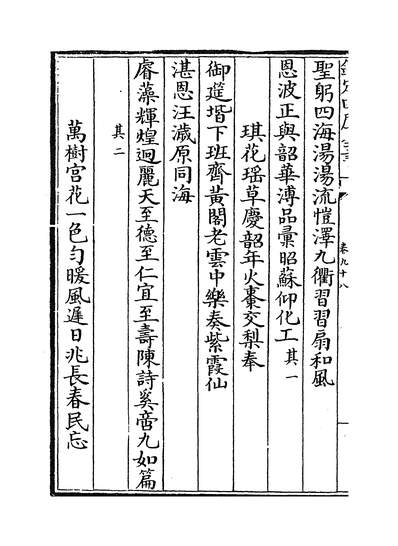 欽定四庫全書
卷九十八
聖躬四海湯湯流愷澤九衢習習扇和風
恩波正與韶華溥品彙昭蘇仰化工其一
琪花瑶草慶韶年火棗交梨奉
御筵堦下班齊黃閣老雲中樂奏紫霞仙
湛恩汪濊原同海
睿藻輝煌迥麗天至德至仁宜至壽陳詩奚啻九如篇
其二
萬樹宫花一色勻暖風遲日兆長春民忘